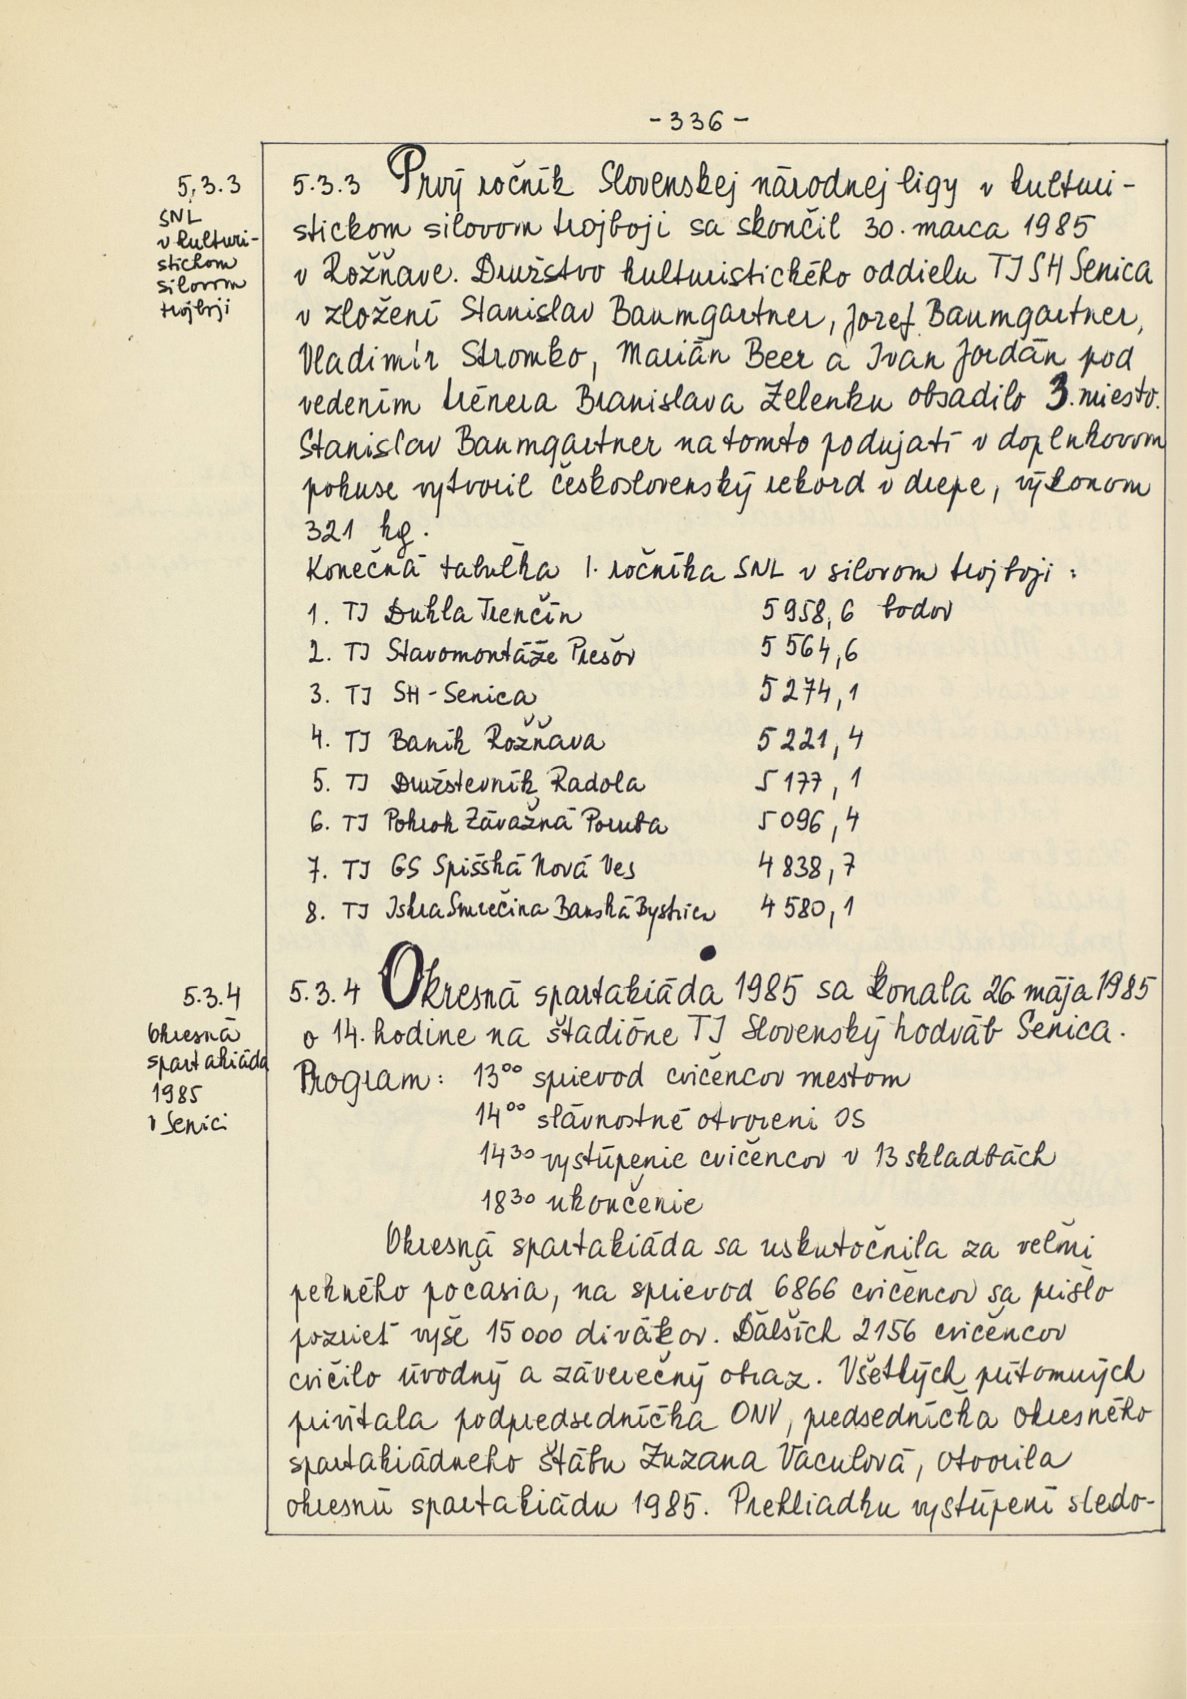 -336-
5.3.3
SNL
v kulturi-
stickom
silovom
trojboji
5.3.3 Prvý ročník Slovenskej národnej ligy v kulturi-
stickom silovom trojboji sa skončil 30. marca 1985
v Rožňave. Družstvo kulturistického oddielu TJ SH Senica
v zložení Stanislav Baumgartner, Jozef Baumgartner,
Vladimír Stromko, Marián Beer a Ivan Jordán pod
vedením trénera Branislava Zelenku obsadilo 3. miesto.
Stanislav Baumgartner na tomto podujatí v doplnkovom
pokuse vytvoril československý rekord v drepe, výkonom
321 kg.
Konečná tabulka I. ročníka SNL v silovom trojboji:
1. TJ Dukla Trenčín 5 958,6 bodov
2. TJ Stavomontáže Prešov 5 564,6
3. TJ SH - Senica 5 274,1
4. TJ Baník Rožňava 5 221,4
5. TJ Družstevník Radola 5 177,1
6. TJ Pokrok Závažná Poruba 5 096,4
7. TJ GS Spišská Nová Ves 4 838,7
8. TJ Iskra Smrečina Banská Bystrica 4 580,1
5.3.4
Okresná
spartakiáda
1985
v Senici
5.3.4 Okresná spartakiáda 1985 sa konala 26 mája 1985
o 14. hodine na štadióne TJ Slovenský hodváb Senica.
Program: 13⁰⁰ sprievod cvičencov mestom
14⁰⁰ slávnostné otvoreni OS
14³⁰ vystúpenie cvičencov v 13 skladbách
18³⁰ ukončenie
Okresná spartakiáda sa uskutočnila za veľmi
pekného počasia, na sprievod 6866 cvičencov sa prišlo
pozrieť vyše 15 000 divákov. Ďalších 2156 cvičencov
cvičilo úvodný a záverečný obraz. Všetkých prítomných
privítala podpredsedníčka ONV, predsedníčka okresného
spartakiádneho štábu Zuzana Vaculová, otvorila
okresnú spartakiádu 1985. Prehliadku vystúpení sledo-